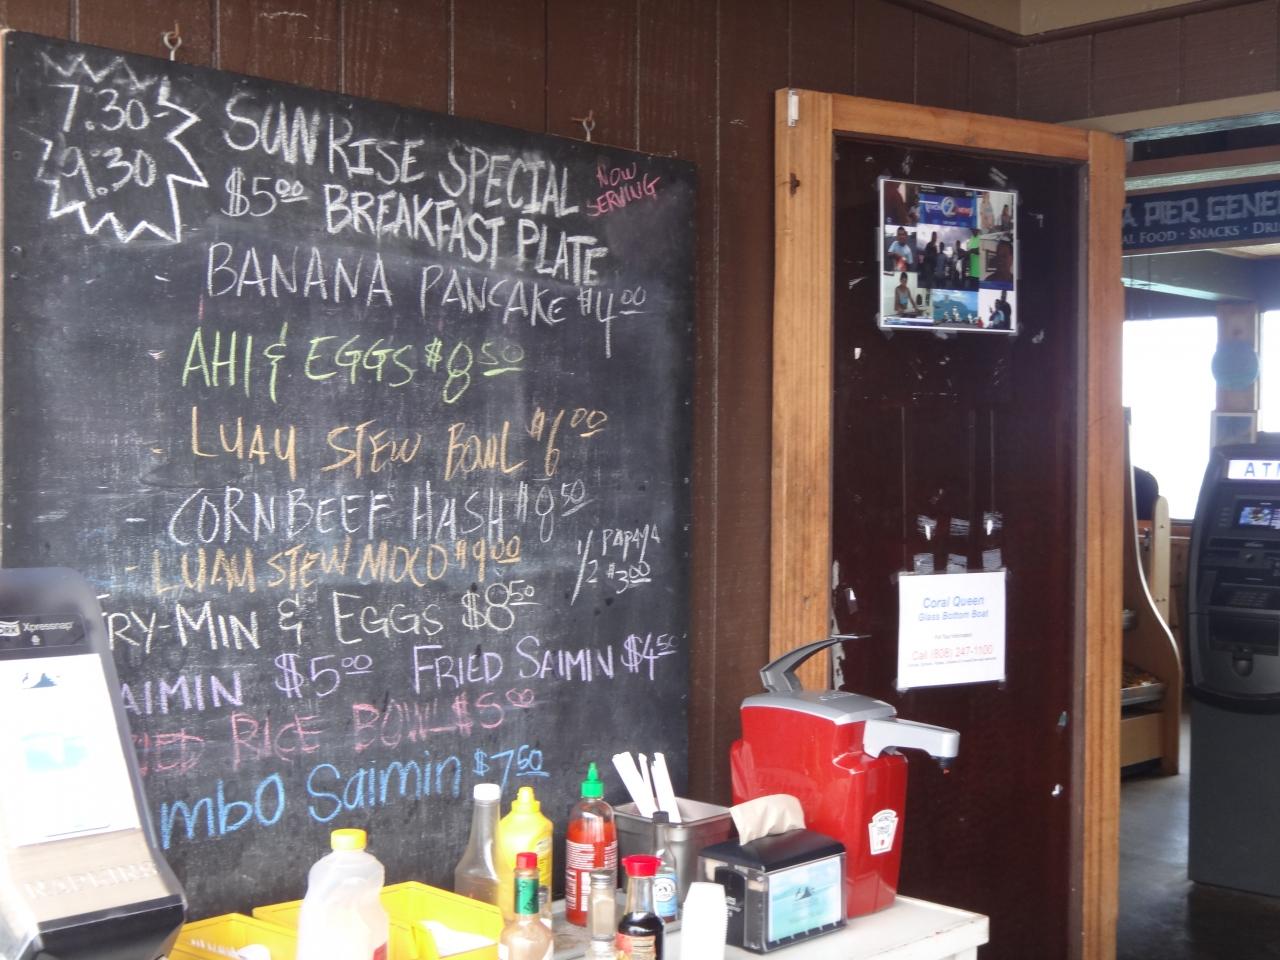 7.30-
9.30
SUNRISE SPECIAL
$5.00 BREAKFAST PLATE
NOW
SERVING
- BANANA PANCAKE $4.00
- AHI & EGGS $8.50
- LUAU STEW BOWL $6.00
- CORN BEEF HASH $8.50
- LUAU STEW MOCO $9.00
1/2 PAPAYA
$3.00
FRY-MIN & EGGS $8.50
AIMIN $5.00 FRIED SAIMIN $4.50
RICE BOWL $5.00
mbO Saimin $7.50
Xpressnap
NAPKINS
2
A PIER GENE
AL FOOD · SNACKS · DRI
ATM
Coral Queen
Glass Bottom Boat
For Tour Information
Call (808) 247-1100
HEINZ